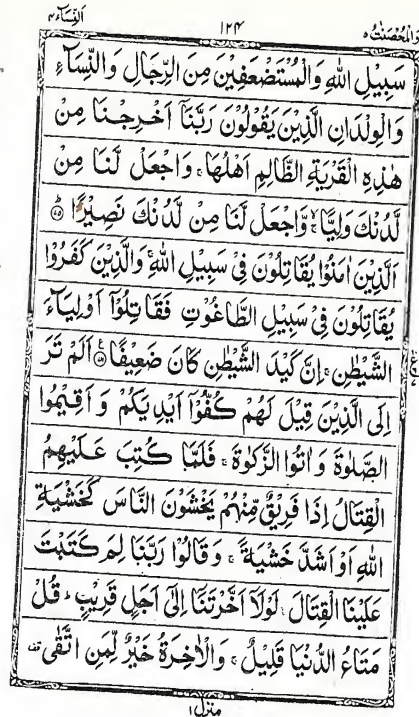 النِّسَآء ۴
۱۲۴
وَالْمُحْصَنٰتُ ۵
سَبِيْلِ اللّٰهِ وَالْمُسْتَضْعَفِيْنَ مِنَ الرِّجَالِ وَالنِّسَآءِ
وَالْوِلْدَانِ الَّذِيْنَ يَقُوْلُوْنَ رَبَّنَآ اَخْرِجْنَا مِنْ
هٰذِهِ الْقَرْيَةِ الظَّالِمِ اَهْلُهَا ۚ وَاجْعَلْ لَّنَا مِنْ
لَّدُنْكَ وَلِيًّا ۙۚ وَّاجْعَلْ لَّنَا مِنْ لَّدُنْكَ نَصِيْرًا ؕ ﴿۷۵﴾
اَلَّذِيْنَ اٰمَنُوْا يُقَاتِلُوْنَ فِيْ سَبِيْلِ اللّٰهِ ۚ وَالَّذِيْنَ كَفَرُوْا
يُقَاتِلُوْنَ فِيْ سَبِيْلِ الطَّاغُوْتِ فَقَاتِلُوْٓا اَوْلِيَآءَ
الشَّيْطٰنِ ۚ اِنَّ كَيْدَ الشَّيْطٰنِ كَانَ ضَعِيْفًا ﴿۷۶﴾ اَلَمْ تَرَ
اِلَى الَّذِيْنَ قِيْلَ لَهُمْ كُفُّوْٓا اَيْدِيَكُمْ وَاَقِيْمُوا
الصَّلٰوةَ وَاٰتُوا الزَّكٰوةَ ۚ فَلَمَّا كُتِبَ عَلَيْهِمُ
الْقِتَالُ اِذَا فَرِيْقٌ مِّنْهُمْ يَخْشَوْنَ النَّاسَ كَخَشْيَةِ
اللّٰهِ اَوْ اَشَدَّ خَشْيَةً ۚ وَقَالُوْا رَبَّنَا لِمَ كَتَبْتَ
عَلَيْنَا الْقِتَالَ ۚ لَوْلَآ اَخَّرْتَنَآ اِلٰٓى اَجَلٍ قَرِيْبٍ ؕ قُلْ
مَتَاعُ الدُّنْيَا قَلِيْلٌ ۚ وَالْاٰخِرَةُ خَيْرٌ لِّمَنِ اتَّقٰى قف
منزل ۱